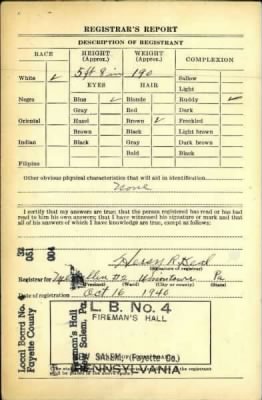 REGISTRAR'S REPORT
DESCRIPTION OF REGISTRANT
RACE HEIGHT (Approx.) WEIGHT (Approx.) COMPLEXION
White ✓ 5 ft 8 in 190 Sallow
EYES HAIR Light
Negro Blue ✓ Blonde Ruddy ✓
Gray Red Dark
Oriental Hazel Brown ✓ Freckled
Brown Black Light brown
Indian Black Gray Dark brown
Bald Black
Filipino
Other obvious physical characteristics that will aid in identification
None
I certify that my answers are true; that the person registered has read or has had
read to him his own answers; that I have witnessed his signature or mark and that
all of his answers of which I have knowledge are true, except as follows:
32 004
051
(Signature of registrar)
Registrar for #2 Uniontown Pa
(Precinct) (Ward) (City or county) (State)
Date of registration Oct 16 1940
Local Board No.
Fayette County
Fireman's Hall
New Salem, Pa.
L. B. No. 4
FIREMAN'S HALL
NEW SALEM (Fayette Co.)
PENNSYLVANIA